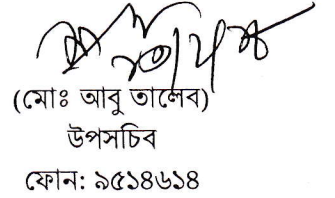 (মোঃ আবু তালেব)
উপসচিব
ফোন: ৯৫১৪৬১৪